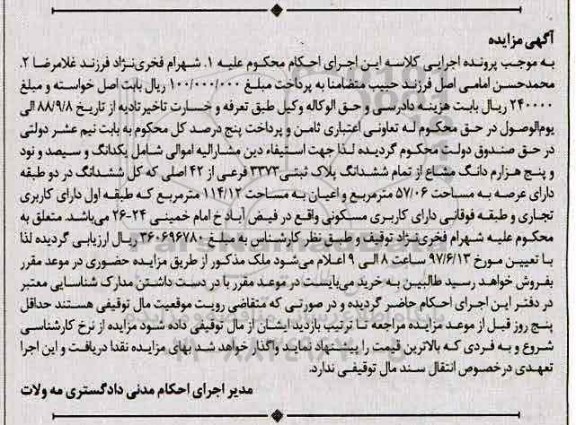 آگهی مزایده
به موجب پرونده اجرایی کلاسه این اجرای احکام محکوم علیه ۱. شهرام فخری‌نژاد فرزند غلامرضا ۲.
محمدحسن امامی اصل فرزند حبیب متضامنا به پرداخت مبلغ ۱۰۰/۰۰۰/۰۰۰ ریال بابت اصل خواسته و مبلغ
۲۴۰۰۰۰ ریال بابت هزینه دادرسی و حق الوکاله وکیل طبق تعرفه و خسارت تاخیر تادیه از تاریخ ۸۸/۹/۸ الی
یوم‌الوصول در حق محکوم له تعاونی اعتباری ثامن و پرداخت پنج درصد کل محکوم به بابت نیم عشر دولتی
در حق صندوق دولت محکوم گردیده لذا جهت استیفاء دین مشارالیه اموالی شامل یکدانگ و سیصد و نود
و پنج هزارم دانگ مشاع از تمام ششدانگ پلاک ثبتی ۳۳۷۳ فرعی از ۴۲ اصلی که کل ششدانگ در دو طبقه
دارای عرصه به مساحت ۵۷/۰۶ مترمربع و اعیان به مساحت ۱۱۴/۱۲ مترمربع که طبقه اول دارای کاربری
تجاری و طبقه فوقانی دارای کاربری مسکونی واقع در فیض آباد خ امام خمینی ۲۴-۲۶ می‌باشد. متعلق به
محکوم علیه شهرام فخری‌نژاد توقیف و طبق نظر کارشناس به مبلغ ۳۶۰۶۹۶۷۸۰ ریال ارزیابی گردیده لذا
با تعیین مورخ ۹۷/۶/۱۳ ساعت ۸ الی ۹ اعلام می‌شود ملک مذکور از طریق مزایده حضوری در موعد مقرر
بفروش خواهد رسید طالبین به خرید می‌بایست در موعد مقرر با در دست داشتن مدارک شناسایی معتبر
در دفتر این اجرای احکام حاضر گردیده و در صورتی که متقاضی رویت موقعیت مال توقیفی هستند حداقل
پنج روز قبل از موعد مزایده مراجعه تا ترتیب بازدید ایشان از مال توقیفی داده شود مزایده از نرخ کارشناسی
شروع و به فردی که بالاترین قیمت را پیشنهاد نماید واگذار خواهد شد. بهای مزایده نقدا دریافت و این اجرا
تعهدی درخصوص انتقال سند مال توقیفی ندارد.
مدیر اجرای احکام مدنی دادگستری مه ولات